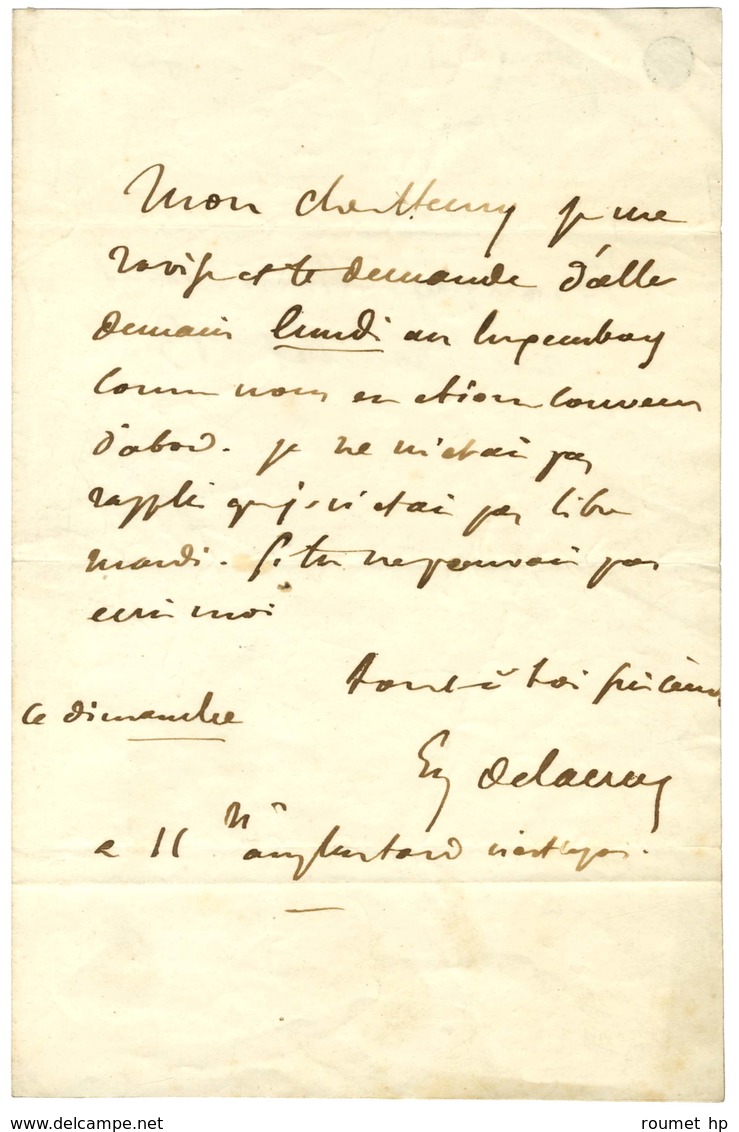 Mon cher Henry je me
ravise et te demande d'aller
demain lundi au Luxembourg
comme nous en étions convenus
d'abord. je ne m'étais pas
rappelé que je n'étais pas libre
mardi. Si tu ne pouvais pas
écris moi
tout à toi sincèrement
ce dimanche
Eug Delacroix
a 11 h au plus tard n'est ce pas.
www.delcampe.net
roumet hp